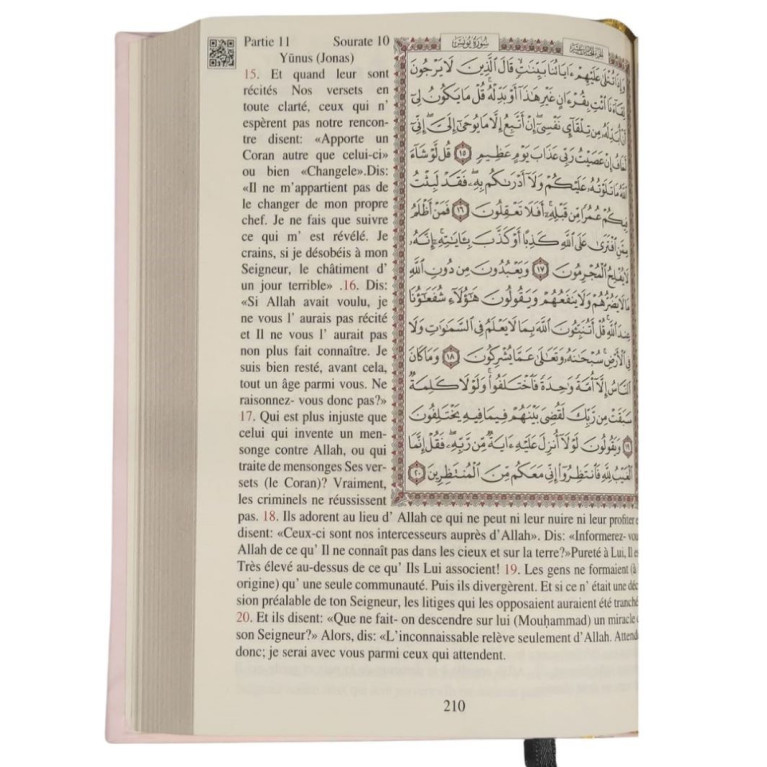 Partie 11 Sourate 10
Yūnus (Jonas)
15. Et quand leur sont
récités Nos versets en
toute clarté, ceux qui n’
espèrent pas notre rencon-
tre disent: «Apporte un
Coran autre que celui-ci»
ou bien «Changele».Dis:
«Il ne m’appartient pas de
le changer de mon propre
chef. Je ne fais que suivre
ce qui m’ est révélé. Je
crains, si je désobéis à mon
Seigneur, le châtiment d’
un jour terrible» .16. Dis:
«Si Allah avait voulu, je
ne vous l’ aurais pas récité
et Il ne vous l’ aurait pas
non plus fait connaître. Je
suis bien resté, avant cela,
tout un âge parmi vous. Ne
raisonnez- vous donc pas?»
17. Qui est plus injuste que
celui qui invente un men-
songe contre Allah, ou qui
traite de mensonges Ses ver-
sets (le Coran)? Vraiment,
les criminels ne réussissent
سُورَةُ يُونُسَ
وَإِذَا تُتْلَىٰ عَلَيْهِمْ ءَايَاتُنَا بَيِّنَٰتٍ قَالَ ٱلَّذِينَ لَا يَرْجُونَ
لِقَآءَنَا ٱئْتِ بِقُرْءَانٍ غَيْرِ هَٰذَآ أَوْ بَدِّلْهُ ۚ قُلْ مَا يَكُونُ لِىٓ
أَنْ أُبَدِّلَهُۥ مِن تِلْقَآئِ نَفْسِىٓ ۖ إِنْ أَتَّبِعُ إِلَّا مَا يُوحَىٰٓ إِلَىَّ ۖ إِنِّىٓ
أَخَافُ إِنْ عَصَيْتُ رَبِّى عَذَابَ يَوْمٍ عَظِيمٍ ١٥ قُل لَّوْ شَآءَ
ٱللَّهُ مَا تَلَوْتُهُۥ عَلَيْكُمْ وَلَآ أَدْرَىٰكُم بِهِۦ ۖ فَقَدْ لَبِثْتُ
فِيكُمْ عُمُرًا مِّن قَبْلِهِۦٓ ۚ أَفَلَا تَعْقِلُونَ ١٦ فَمَنْ أَظْلَمُ
مِمَّنِ ٱفْتَرَىٰ عَلَى ٱللَّهِ كَذِبًا أَوْ كَذَّبَ بِـَٔايَٰتِهِۦٓ ۚ إِنَّهُۥ
لَا يُفْلِحُ ٱلْمُجْرِمُونَ ١٧ وَيَعْبُدُونَ مِن دُونِ ٱللَّهِ
مَا لَا يَضُرُّهُمْ وَلَا يَنفَعُهُمْ وَيَقُولُونَ هَٰٓؤُلَآءِ شُفَعَٰٓؤُنَا
عِندَ ٱللَّهِ ۚ قُلْ أَتُنَبِّـُٔونَ ٱللَّهَ بِمَا لَا يَعْلَمُ فِى ٱلسَّمَٰوَٰتِ وَلَا
فِى ٱلْأَرْضِ ۚ سُبْحَٰنَهُۥ وَتَعَٰلَىٰ عَمَّا يُشْرِكُونَ ١٨ وَمَا كَانَ
ٱلنَّاسُ إِلَّآ أُمَّةً وَٰحِدَةً فَٱخْتَلَفُوا۟ ۚ وَلَوْلَا كَلِمَةٌ
سَبَقَتْ مِن رَّبِّكَ لَقُضِىَ بَيْنَهُمْ فِيمَا فِيهِ يَخْتَلِفُونَ
١٩ وَيَقُولُونَ لَوْلَآ أُنزِلَ عَلَيْهِ ءَايَةٌ مِّن رَّبِّهِۦ ۖ فَقُلْ إِنَّمَا
ٱلْغَيْبُ لِلَّهِ فَٱنتَظِرُوٓا۟ إِنِّى مَعَكُم مِّنَ ٱلْمُنتَظِرِينَ ٢٠
pas. 18. Ils adorent au lieu d’ Allah ce qui ne peut ni leur nuire ni leur profiter e
disent: «Ceux-ci sont nos intercesseurs auprès d’Allah». Dis: «Informerez- vou
Allah de ce qu’ Il ne connaît pas dans les cieux et sur la terre?»Pureté à Lui, Il e
Très élevé au-dessus de ce qu’ Ils Lui associent! 19. Les gens ne formaient (à
origine) qu’ une seule communauté. Puis ils divergèrent. Et si ce n’ était une déc
sion préalable de ton Seigneur, les litiges qui les opposaient auraient été tranché
20. Et ils disent: «Que ne fait- on descendre sur lui (Mouḥammad) un miracle d
son Seigneur?» Alors, dis: «L’inconnaissable relève seulement d’Allah. Attend
donc; je serai avec vous parmi ceux qui attendent.
210